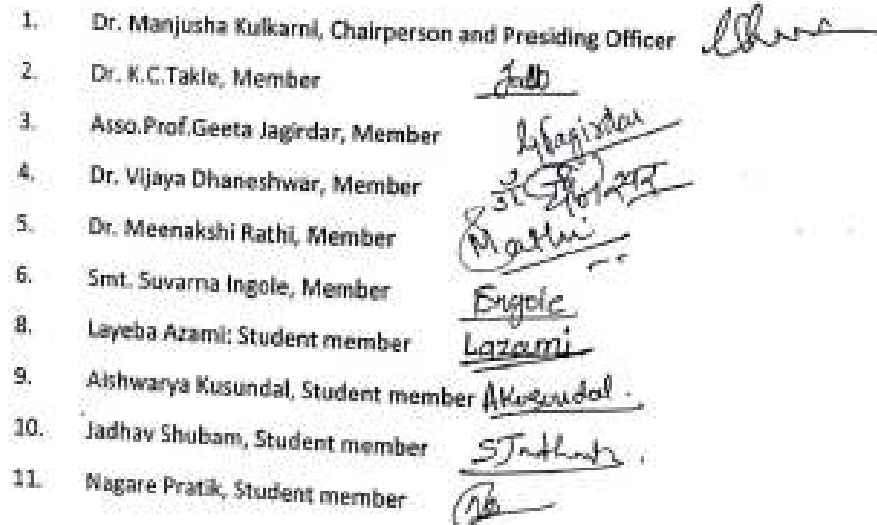 1. Dr. Manjusha Kulkarni, Chairperson and Presiding Officer
2. Dr. K.C.Takle, Member
3. Asso.Prof.Geeta Jagirdar, Member
4. Dr. Vijaya Dhaneshwar, Member
5. Dr. Meenakshi Rathi, Member
6. Smt. Suvarna Ingole, Member
8. Layeba Azami: Student member Lazami
9. Aishwarya Kusundal, Student member AKusundal.
10. Jadhav Shubam, Student member
11. Nagare Pratik, Student member